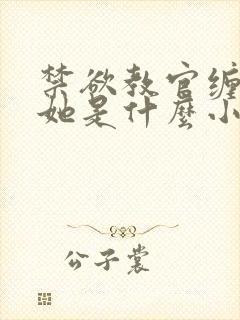 禁欲教官缠
她是什麼小
公子裳